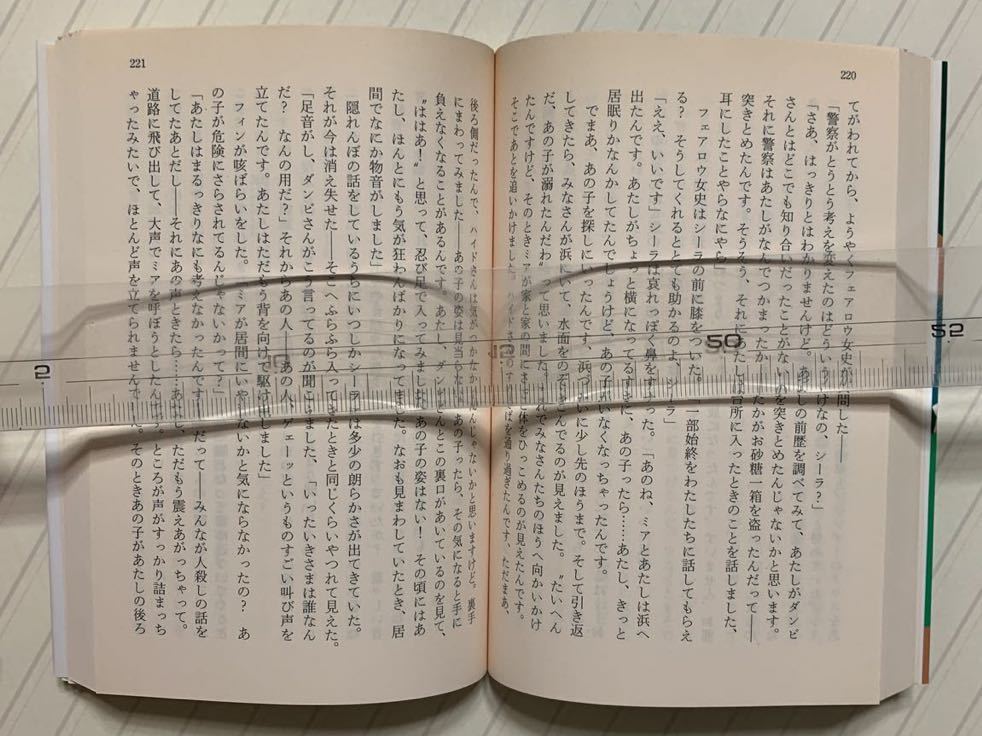 220
てがわれてから、ようやくフェアロウ女史が質問した――
「警察がとうとう考えを変えたのはどういうわけなの、シーラ？」
「さあ、はっきりとはわかりませんけど。あたしの前歴を調べてみて、あたしがダンビ
さんとはどこでも知り合いだったことがないのを突きとめたんじゃないかと思います。
それに警察はあたしがなんでつかまったか――たかがお砂糖一箱を盗ったんだって――
突きとめたんです。そうそう、それにあたし台所に入ったときのことを話しました、
耳にしたことやらなにやら」
フェアロウ女史はシーラの前に膝をついた。「一部始終をわたしたちに話してもらえ
る？　そうしてくれるととても助かるのよ、シーラ」
「ええ、いいです」シーラは哀れっぽく鼻をすすった。「あのね、ミアとあたしは浜へ
出たんです。あたしがちょっと横になってるすきに、あの子ったら……あたし、きっと
居眠りかなんかしてたんでしょうけど、あの子がいなくなっちゃったんです。
でまあ、あの子を探しにいったんです、浜づたいに少し先のほうまで。そして引き返
してきたら、みなさんが浜にいて、水面をのぞきこんでるのが見えました。〝たいへん
だ、あの子が溺れたんだわ〟って思いました。それでみなさんたちのほうへ向かいかけ
たんですけど、そのときミアが家と家の間にまた体をひっこめるのが見えたんです。
そこであとを追いかけました。ハイドさんのすぐそばを通り過ぎたんです、ただまあ、
221
後ろ側だったんで、ハイドさんは気がつかなかったんじゃないかと思いますけど。裏手
にまわってみました――あの子の姿は見当らない。あの子ったら、その気になると手に
負えなくなることがあるんです。あたし、ダンビさんとこの裏口があいているのを見て、
〝ははあ！〟と思って、忍び足で入ってみました。あの子の姿はない！　その頃にはあ
たし、ほんとにもう気が狂わんばかりになってました。なおも見まわしていたとき、居
間でなにか物音がしました」
隠れんぼの話をしているうちにいつしかシーラには多少の朗らかさが出てきていた。
それが今は消え失せた――そこへふらふら入ってきたときと同じくらいやつれて見えた。
「足音がし、ダンビさんがこう言ってるのが聞こえました、「いったいきさまは誰なん
だ？　なんの用だ？」それからあの人――あの人、ゲェーッというものすごい叫び声を
立てたんです。あたしはただもう背を向けて駆け出しました」
フィンが咳ばらいをした。「ミアが居間にいやしないかと気にならなかったの？　あ
の子が危険にさらされてるんじゃないかって？」
「あたしはまるっきりなにも考えなかったんです！　だって――みんなが人殺しの話を
してたあとだし――それにあの声ときたら……あたし、ただもう震えあがっちゃって。
道路に飛び出して、大声でミアを呼ぼうとしたんです。ところが声がすっかり詰まっち
ゃったみたいで、ほとんど声を立てられませんでした。そのときあの子があたしの後ろ
2
50
52